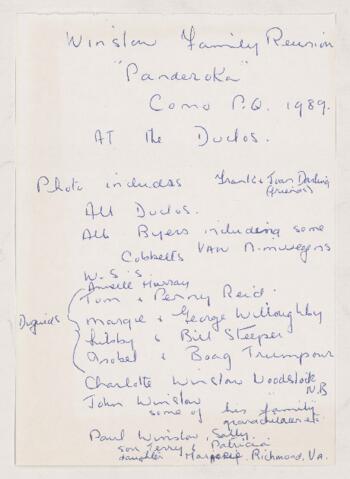 Winslow Family Reunion
"Panderoka"
Como P.Q. 1989.
AT the Duclos.
Photo includes Frank & Joan Darling
(friends)
All Duclos.
All Byers including some
Cobbetts Van Nimwegens
W.S.'s
Annette Murray
Tom & Penny Reid.
Duguids Margie & George Willoughby
& Bill Steeper
Isobel & Boag Trumpour
Charlotte Winslow Woodstock
N.B
John Winslow
some of his family
grandchildren etc.
Paul Winslow, Sally,
son Terry & Patricia
daughter Margerie, Richmond, VA.